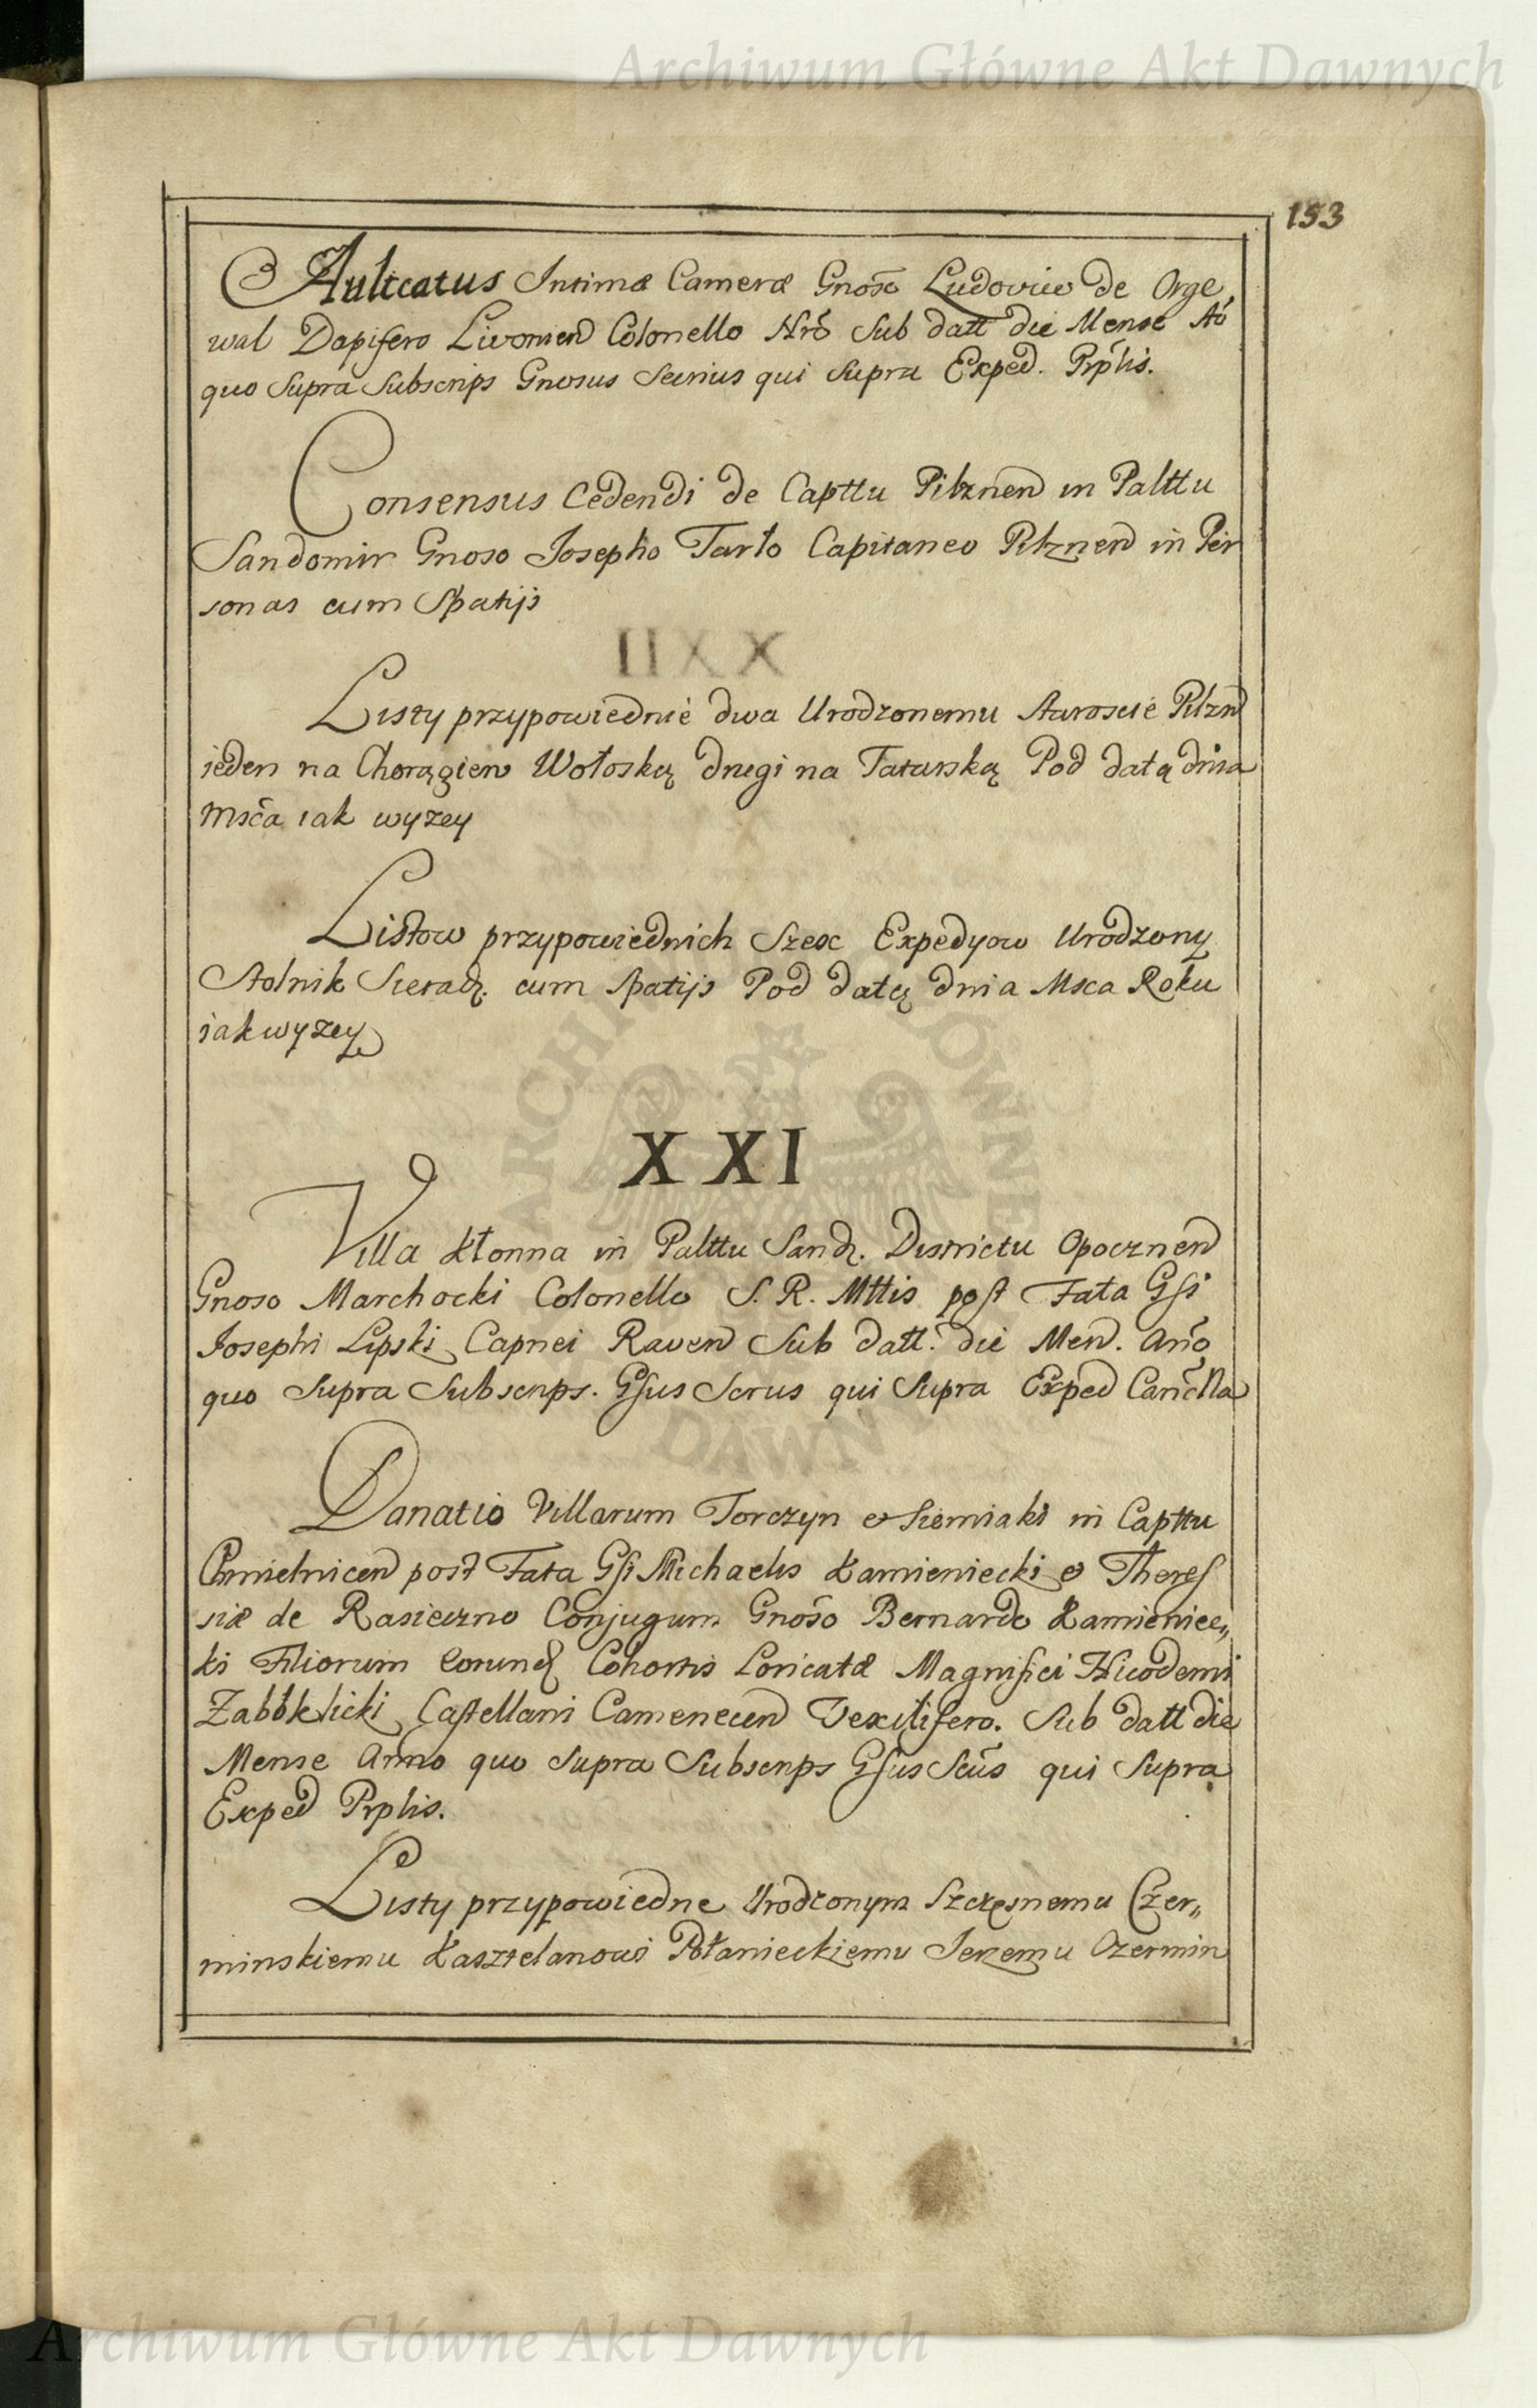 Archiwum Główne Akt Dawnych
153
Aulicatus Intimæ Cameræ Gnoso Ludovico de Orge
wal Dapifero Livonien Colonello Nro Sub datt die Mense Ao
quo Supra Subscrips Gnosus Secrius qui Supra Exped. Prplis.
Consensus Cedendi de Capttu Pilznen in Palttu
Sandomir Gnoso Josepho Tarło Capitaneo Pilznen in Per
sonas cum Spatijs
Listy przypowiednie dwa Urodzonemu Staroscie Pilzn
ieden na Chorągiew Wołoską drugi na Tatarską Pod datą dnia
Msca iak wyzey
Listow przypowiednich Szesc Expedyow Urodzony
Stolnik Sieradz. cum Spatijs Pod datą dnia Msca Roku
iak wyzey
XXI
Villa Kłonna in Palttu Sand. Districtu Opocznen
Gnoso Marchocki Colonello S. R. Mttis post Fata Gsi
Josephi Lipski Capnei Raven Sub datt. die Men. Ano
quo Supra Subscrips. Gsus Scrus qui Supra Exped Canclla
Donatio Villarum Torczyn et Siemiaki in Capttu
Chmielnicen post Fata Gsi Michaelis Kamieniecki et Theres
siæ de Rasieczno Conjugum Gnoso Bernardo Kamieniec„
ki Filiorum eorund Cohortis Loricatæ Magnifici Nicodemi
Zaboklicki Castellani Camenecen Vexilifero. Sub datt die
Mense Anno quo Supra Subscrips Gsus Scus qui Supra
Exped Prplis.
Listy przypowiedne Urodzonym Szczęsnemu Czer„
minskiemu Kasztelanowi Połanieckiemu Jerzemu Czermin
Archiwum Główne Akt Dawnych